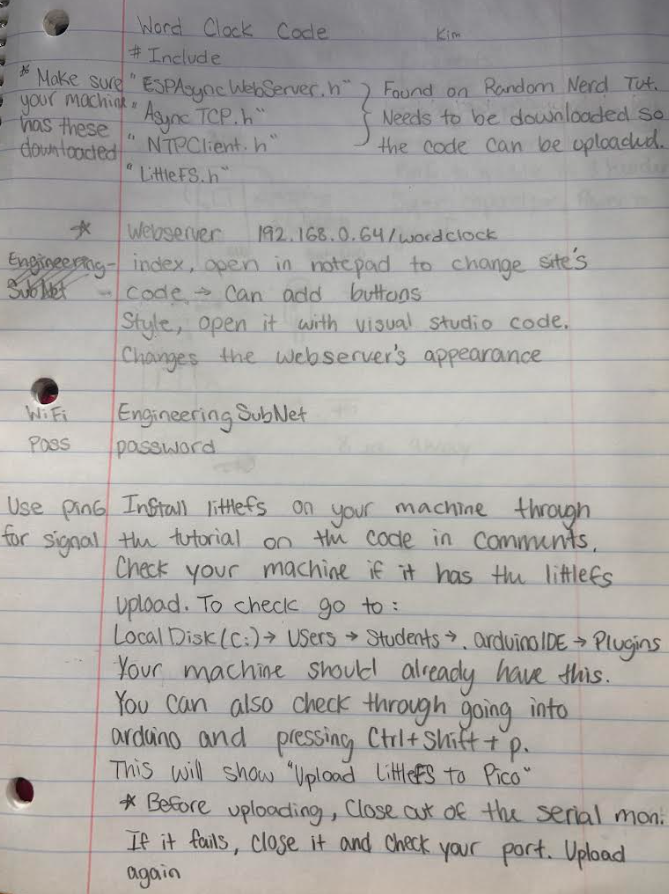 Word Clock Code Kim
# Include
* Make sure your machine has these downloaded
"ESPAsyncWebServer.h"
"AsyncTCP.h"
"NTPClient.h"
"LittleFS.h"
Found on Random Nerd Tut.
Needs to be downloaded so
the code can be uploaded.
* Webserver 192.168.0.64/wordclock
Engineering- index, open in notepad to change site's
SubNet - code → Can add buttons
Style, open it with visual studio code.
Changes the webserver's appearance
WiFi Engineering SubNet
Pass password
Use pin6 Install littlefs on your machine through
for signal the tutorial on the code in comments.
Check your machine if it has the littlefs
upload. To check go to:
Local Disk (C:) → Users → Students → .arduinoIDE → Plugins
Your machine should already have this.
You can also check through going into
arduino and pressing Ctrl + Shift + p.
This will show "Upload LittleFS to Pico"
* Before uploading, Close out of the serial mon.
If it fails, close it and check your port. Upload
again